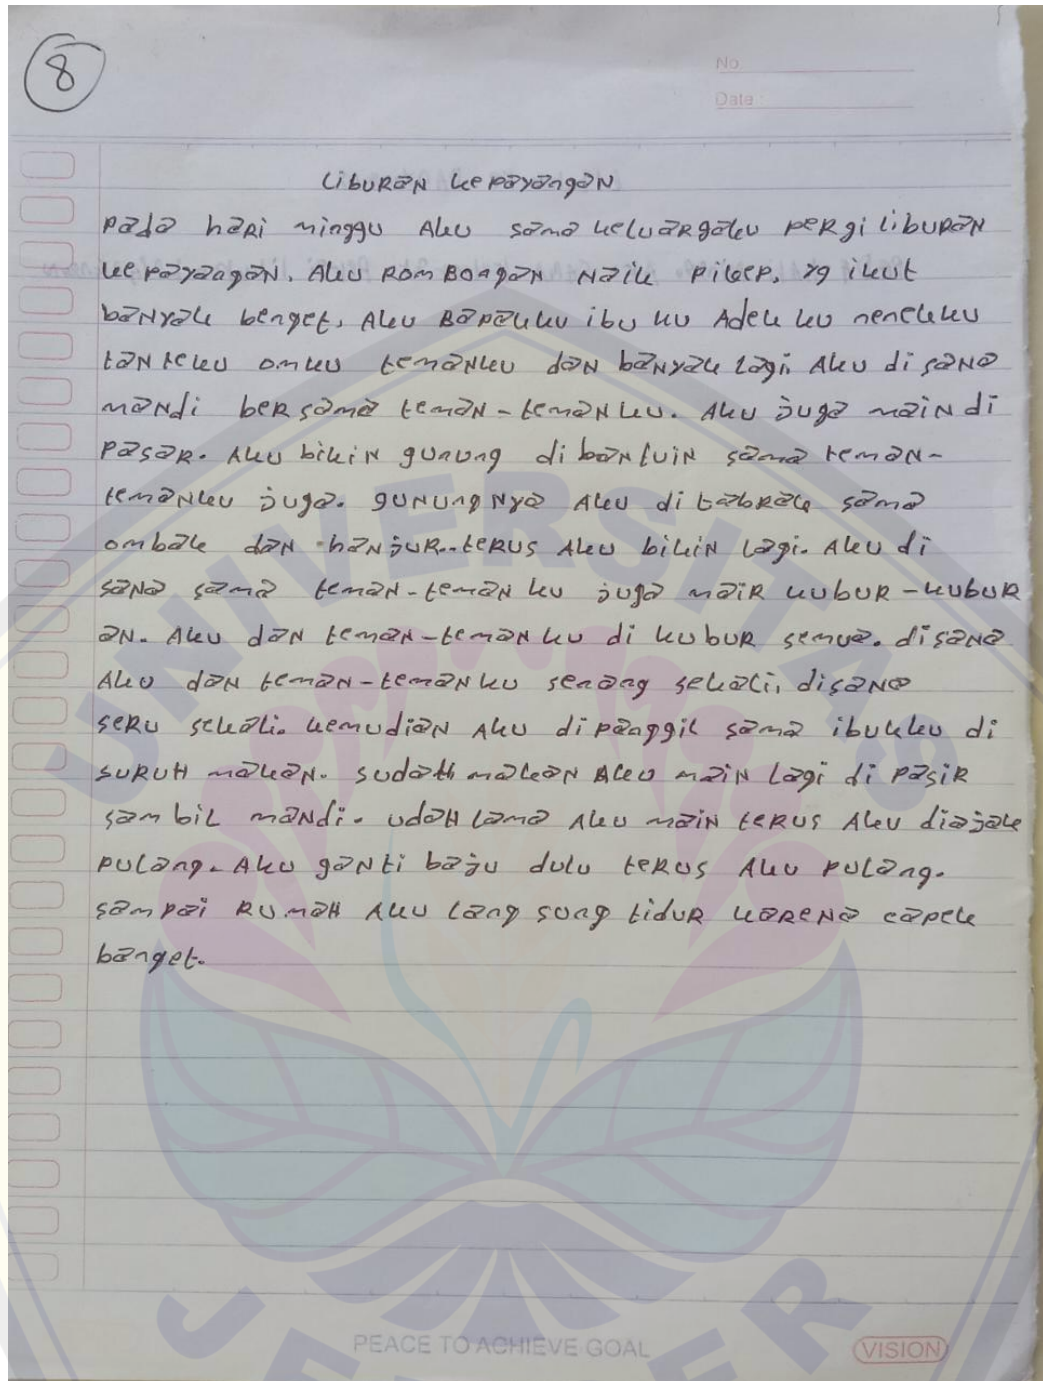 8
No
Date :
Liburan kepayangan
Pada hari minggu Aku sama keluargaku pergi liburan
kepayangan. Aku rombongan naik pikep. yg ikut
banyak benget. Aku Bapakku ibu ku Adek ku nenekku
tanteku omku temanku dan banyak lagi. Aku di sana
mandi bersama teman-temanku. Aku juga main di
pasar. Aku bikin gunung di bantuin sama teman-
temanku juga. gunungnya Aku di tabrak sama
ombak dan hanjur..terus Aku bikin lagi. Aku di
sana sama teman-teman ku juga mair kubur-kubur
an. Aku dan teman-teman ku di kubur semua. disana
Aku dan teman-temanku senang sekali. disana
seru sekali. kemudian Aku di panggil sama ibukku di
suruh makan. sudah makan Aku main lagi di pasir
sambil mandi. udah lama Aku main terus Aku diajak
pulang. Aku ganti baju dulu terus Aku pulang.
sampai rumah Aku lang sung tidur karena capek
banget.
PEACE TO ACHIEVE GOAL
VISION
UNIVERSITAS
JEMBER